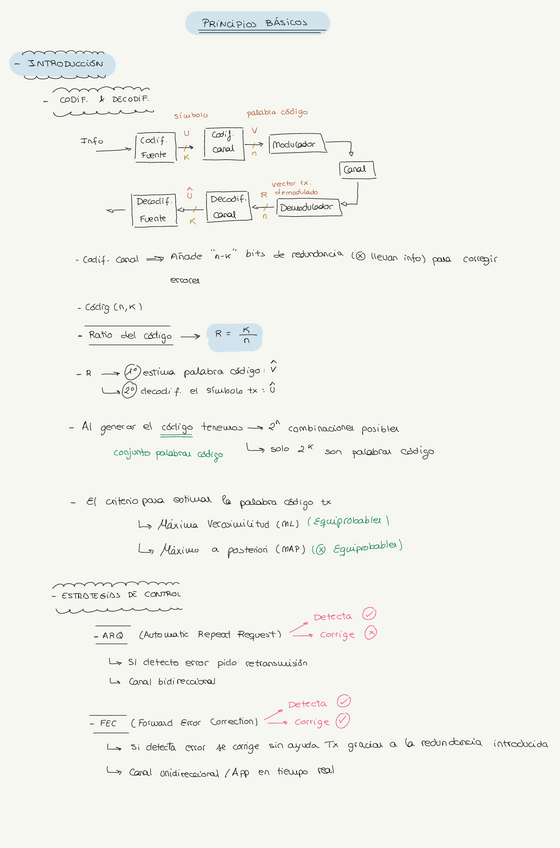 PRINCIPIOS BÁSICOS
- INTRODUCCIÓN
- CODIF. & DECODIF.
símbolo
palabra código
Info
Codif. Fuente
U
K
Codif. Canal
V
n
Modulador
Canal
vector tx. demodulado
Decodif. Fuente
Û
K
Decodif. Canal
R
n
Demodulador
- Codif. Canal ⟹ Añade "n-k" bits de redundancia (ⓧ llevan info) para corregir
errores
- Códig (n,k)
- Ratio del código → R = K/n
- R → 1º estima palabra código: V̂
↳ 2º decodif. el símbolo tx: Û
- Al generar el código tenemos → 2ⁿ combinaciones posibles
conjunto palabras código ↳ solo 2ᴷ son palabras código
- El criterio para estimar la palabra código tx
↳ Máxima Verosimilitud (ML) (Equiprobables)
↳ Máximo a posteriori (MAP) (ⓧ Equiprobables)
- ESTRATEGIAS DE CONTROL
Detecta ✓
- ARQ (Automatic Repeat Request) → Corrige ⓧ
↳ Si detecto error pido retransmisión
↳ Canal bidireccional
Detecta ✓
- FEC (Forward Error Correction) → Corrige ✓
↳ Si detecta error se corrige sin ayuda Tx gracias a la redundancia introducida
↳ Canal unidireccional / App en tiempo real